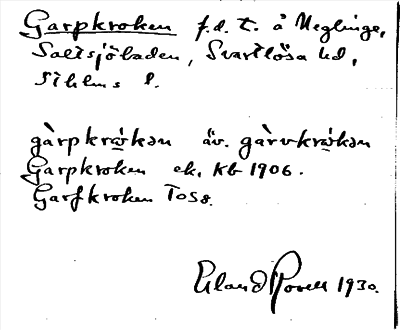 Garpkroken f.d. t. å Neglinge,
Saltsjöbaden, Svartlösa hd,
Sthlms l.
gàrpkrὼkən äv. gàrvkrὼkən
Garpkroken ek. Kb 1906.
Garfkroken Toss.
Erland Rosell 1930.